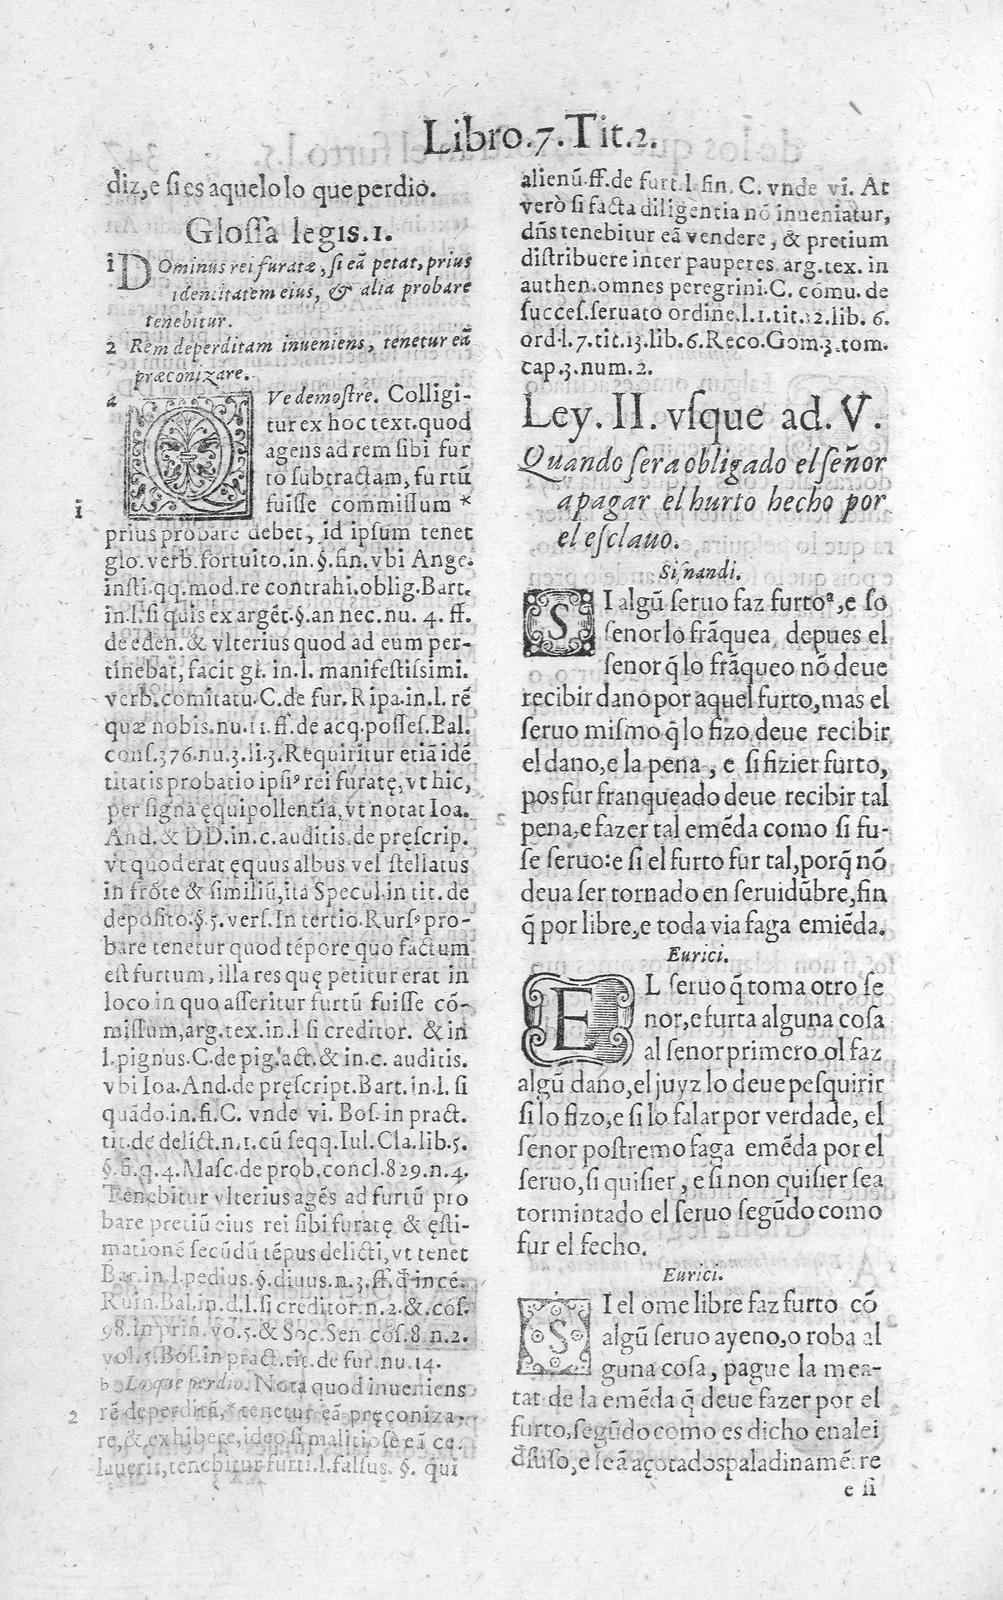 Libro.7.Tit.2.
diz,e si es aquelo lo que perdio.
Glossa legis.1.
1 DOminus rei furatæ, si eā petat, prius
identitatem eius, & alia probare
tenebitur.
2 Rem deperditam inueniens, tenetur eā
præconizare.
a QVe demostre. Colligi-
tur ex hoc text. quod
agens ad rem sibi fur
to subtractam, furtū
fuisse commissum *
1
prius probare debet, id ipsum tenet
glo. verb. fortuito. in. §. fin. vbi Ange.
insti. qq. mod. re contrahi. oblig. Bart.
in. l. si quis ex argēt. §. an nec. nu. 4. ff.
de eden. & vlterius quod ad eum per-
tinebat, facit gl. in. l. manifestissimi.
verb. comitatu. C. de fur. Ripa. in. l. rē
quæ nobis. nu. 11. ff. de acq. posses. Bal.
cons. 376. nu. 3. li. 3. Requiritur etiā idē
titatis probatio ipsiꝰ rei furatę, vt hic,
per signa ęquipollentia, vt notat Ioa.
And. & DD. in. c. auditis. de pręscrip.
vt quod erat ęquus albus vel stellatus
in frōte & similiū, ita Specul. in tit. de
deposito. §. 5. vers. In tertio. Rursꝰ pro-
bare tenetur quod tēpore quo factum
est furtum, illa res quę petitur erat in
loco in quo asseritur furtū fuisse cō-
missum, arg. tex. in. l si creditor. & in
l. pignus. C. de pig. act. & in. c. auditis.
vbi Ioa. And. de pręscript. Bart. in. l. si
quādo. in. fi. C. vnde vi. Bos. in pract.
tit. de delict. n. 1. cū seqq. Iul. Cla. lib. 5.
§. fi. q. 4. Masc. de prob. concl. 829. n. 4.
Tenebitur vlterius agēs ad furtū pro
bare pretiū eius rei sibi furatę & ęsti-
mationē secūdū tēpus delicti, vt tenet
Bar. in. l. pedius. §. diuus. n. 3. ff. đ incē.
Ruin. Bal. in. d. l. si creditor. n. 2. & cōs.
98. In prin. vo. 5. & Soc. Sen cōs. 8. n. 2.
vol. 3. Bos. in pract. tit. de fur. nu. 14.
b Lo que perdio. Nota quod inueniens
2 rē deperditā, * tenetur eā pręconiza-
re, & exhibere, ideo si malitiosè eā ce-
lauerit, tenebitur furti. l. falsus. §. qui
alienū. ff. de furt. l. fin. C. vnde vi. At
verò si facta diligentia nō inueniatur,
dn̄s tenebitur eā vendere, & pretium
distribuere inter pauperes arg. tex. in
authen. omnes peregrini. C. cōmu. de
succes. seruato ordine. l. 1. tit. 12. lib. 6.
ord. l. 7. tit. 13. lib. 6. Reco. Gom. 3. tom.
cap. 3. num. 2.
Ley. II. vsque ad. V.
Quando sera obligado el señor
a pagar el hurto hecho por
el esclauo.
Sisnandi.
SI algū seruo faz furtoª, e so
senor lo frāquea, depues el
senor q̄ lo frāqueo nō deue
recibir dano por aquel furto, mas el
seruo mismo q̄ lo fizo, deue recibir
el dano, e la pena, e si fizier furto,
pos fur franqueado deue recibir tal
pena, e fazer tal emēda como si fu-
se seruo: e si el furto fur tal, porq̄ nō
deua ser tornado en seruidūbre, fin
q̄ por libre, e toda via faga emiēda.
Eurici.
EL seruo q̄ toma otro se
nor, e furta alguna cosa
al senor primero, ol faz
algū dano, el juyz lo deue pesquirir
si lo fizo, e si lo falar por verdade, el
senor postremo faga emēda por el
seruo, si quisier, e si non quisier sea
tormintado el seruo segūdo como
fur el fecho.
Eurici.
SI el ome libre faz furto cō
algū seruo ayeno, o roba al
guna cosa, pague la mea-
tat de la emēda q̄ deue fazer por el
furto, segūdo como es dicho en a lei
đ suso, e seā açotados paladinamēt re
e si